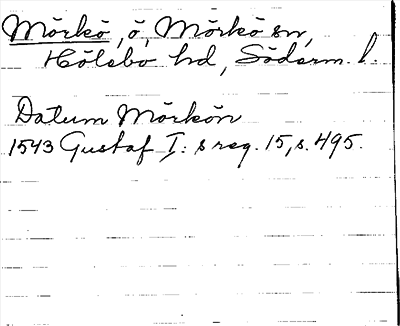 Mörkö, ö, Mörkö sn,
Hölebo hd, Söderm. l.
Datum Mörkön
1543 Gustaf I:s reg. 15, s. 495.